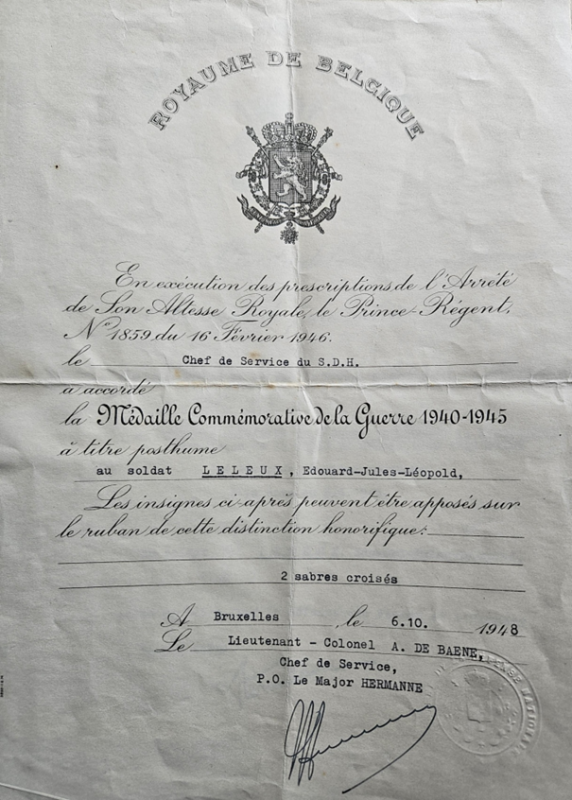 ROYAUME DE BELGIQUE
En exécution des prescriptions de l'Arrêté
de Son Altesse Royale, le Prince-Régent,
N° 1859 du 16 Février 1946.
le Chef de Service du S.D.H.
a accordé
la Médaille Commémorative de la Guerre 1940-1945
à titre posthume
au soldat LELEUX, Edouard-Jules-Léopold,
Les insignes ci-après peuvent être apposés sur
le ruban de cette distinction honorifique:
2 sabres croisés
A Bruxelles, le 6.10. 1948
Le Lieutenant - Colonel A. DE BAENE,
Chef de Service,
P.O. Le Major HERMANNE